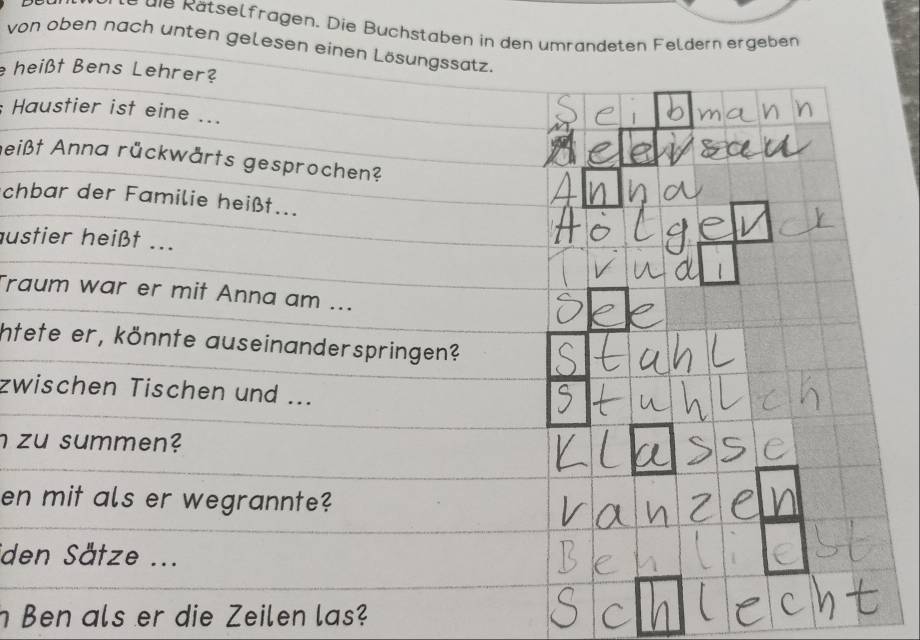 die Rätselfragen. Die Buchstaben in den umrandeten Feldern ergeben
von oben nach unten gelesen einen Lösungssatz.
heißt Bens Lehrer? Seibmann
Haustier ist eine ...
eißt Anna rückwärts gesprochen? Anna
chbar der Familie heißt... Holger
ustier heißt ... Trudi
Traum war er mit Anna am ... See
htete er, könnte auseinanderspringen? Stahl
zwischen Tischen und ... Stuhl
zu summen? Klasse
en mit als er wegrannte? ranzen
den Sätze ... Ben liebt
n Ben als er die Zeilen las? Schlecht